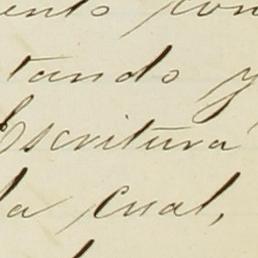 ento con
tando y
Escritura
la cual,